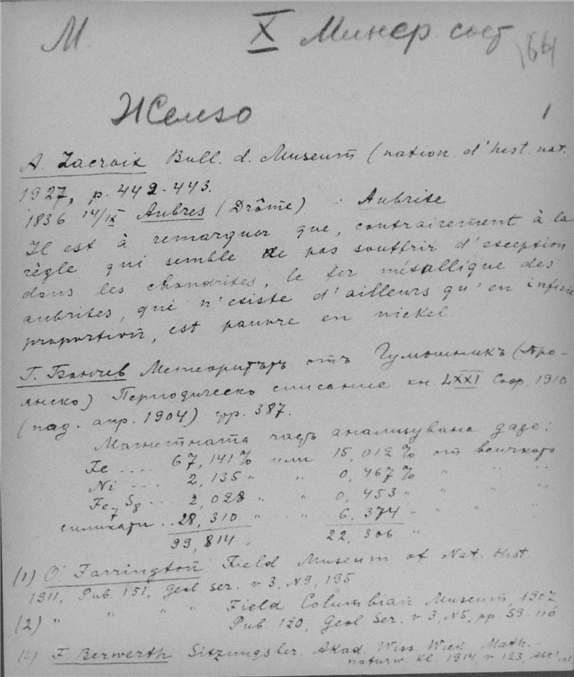 М. X Минер. сост 166
Железо 1
A. Lacroix Bull. d. Museum (nation. d'hist. nat.
1927, p. 442-443.
1836 14/IX Aubres (Drôme) Aubrite
Il est à remarquer que, contrairement à la
règle qui semble ne pas souffrir d'exception
dans les chondrites, le fer métallique des
aubrites, qui n'existe d'ailleurs qu'en infime
proportion, est pauvre en nickel
Г. Бончев Метеоритътъ отъ Гумошникъ (Тро-
янско) Периодическо списание кн LXXI Соф. 1910
(пад. апр. 1904) pp. 387.
Магнетната часть анализувана даде:
Fe .... 67,141% или 15,012% от всичкото
Ni .... 2,135 " " 0,467% " "
Fe7 S8 .... 2,028 " " 0,453 " " "
силикати .. 28,310 " " 6,374 " " "
99,814 22,306 "
(1) O Farrington Field Museum of Nat. Hist.
1911, Pub. 151, Geol. Ser. v 3, N9, 195
(2) " " " Field Columbian Museum, 1907
Pub. 120, Geol Ser. v 3, N5, pp. 59-110
(3) F Berwerth Sitzungsber. Akad. Wiss. Wien, Math.-
naturw Kl. 1914 v 123,